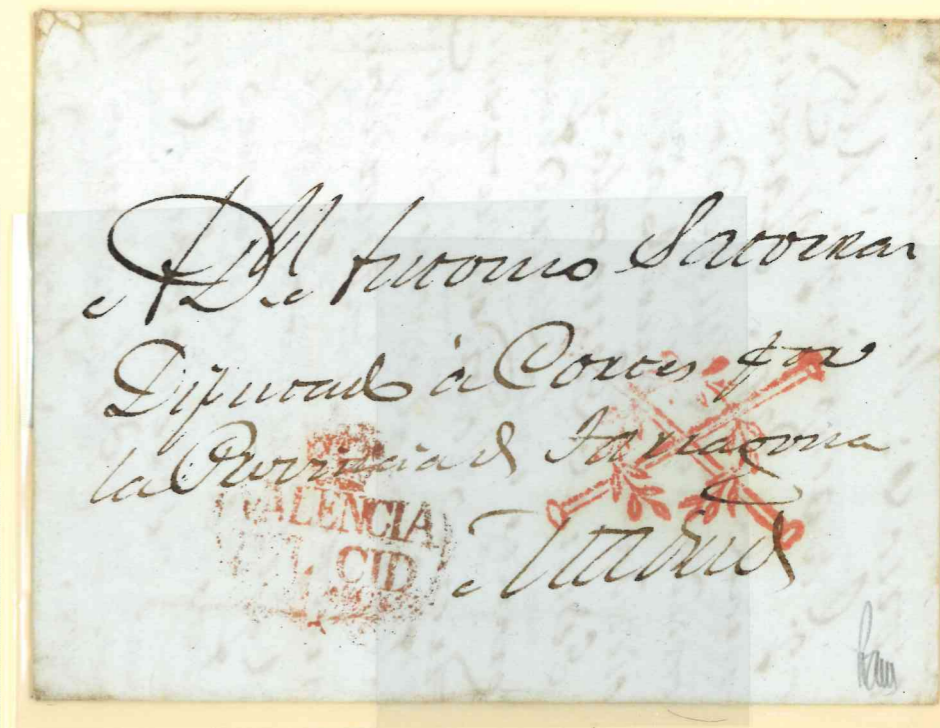 A D.n Antonio Satorras
Diputado à Cortes por
la Provincia de Tarragona
Madrid
VALENCIA
L CID